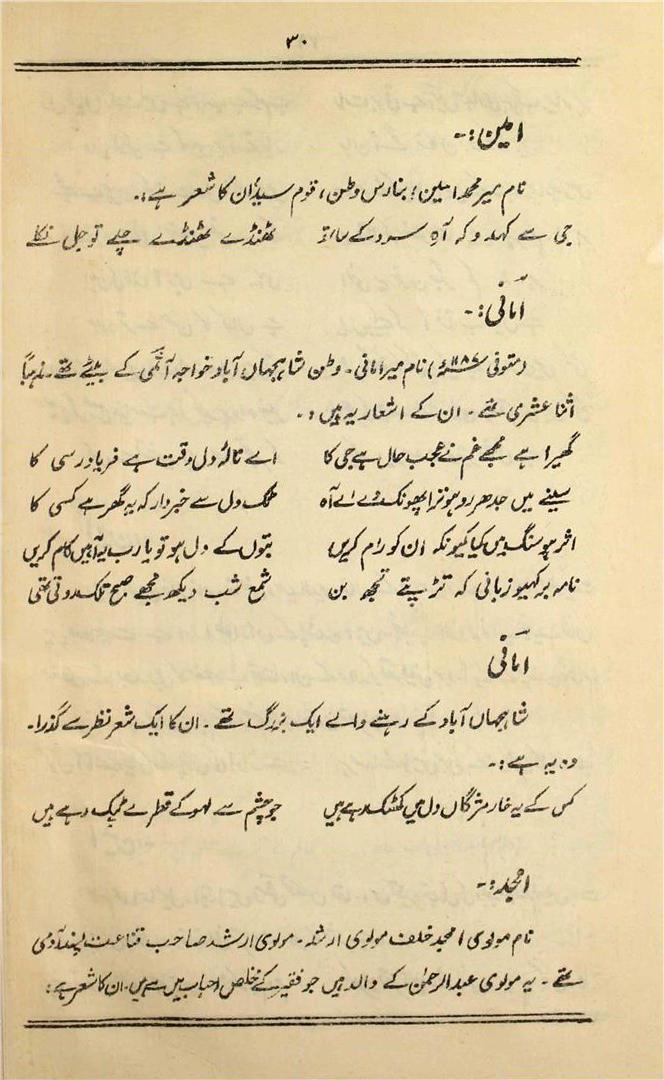 ۳۰
امین:-
نام میر محمد امین؛ بنارس وطن، قوم سید اُن کا شعر ہے:-
جی سے کہدو کہ آہِ سرد کے ساتھ ٹھنڈے ٹھنڈے چلے تو چل نکلے
امآنی:-
(متوفی ۱۱۸۷ھ) نام میر امانی۔ وطن شاہجہاں آباد خواجہ آثمی کے بیٹے تھے مذہباً
اثنا عشری تھے۔ ان کے اشعار یہ ہیں:-
گھیرا ہے مجھے غم نے عجب حال ہے جی کا اے نالۂ دل وقت ہے فریاد رسی کا
سینے میں جدھر رو ہو ترا پھونک دے اے آہ ٹک دل سے خبردار کہ یہ گھر ہے کسی کا
اثر ہو سنگ میں کیا کیونکہ ان کو رام کریں بتوں کے دل ہو تو یا رب یہ آہیں کام کریں
نامہ بر کہیو زبانی کہ تڑپتے تجھ بن شمع شب دیکھ مجھے صبح تک روتی تھی
امآنی
شاہجہاں آباد کے رہنے والے ایک بزرگ تھے۔ ان کا ایک شعر نظر سے گذرا۔
وہ یہ ہے:-
کس کے یہ خار مژگاں دل میں کھٹک رہے ہیں جو چشم سے لہو کے قطرے ٹپک رہے ہیں
امجد:-
نام مولوی امجد خلف مولوی ارشد۔ مولوی ارشد صاحب قناعت پسند آدمی
تھے۔ یہ مولوی عبدالرحمٰن کے والد ہیں جو فقیر کے مخلص احباب میں سے ہیں۔ ان کا شعر ہے: